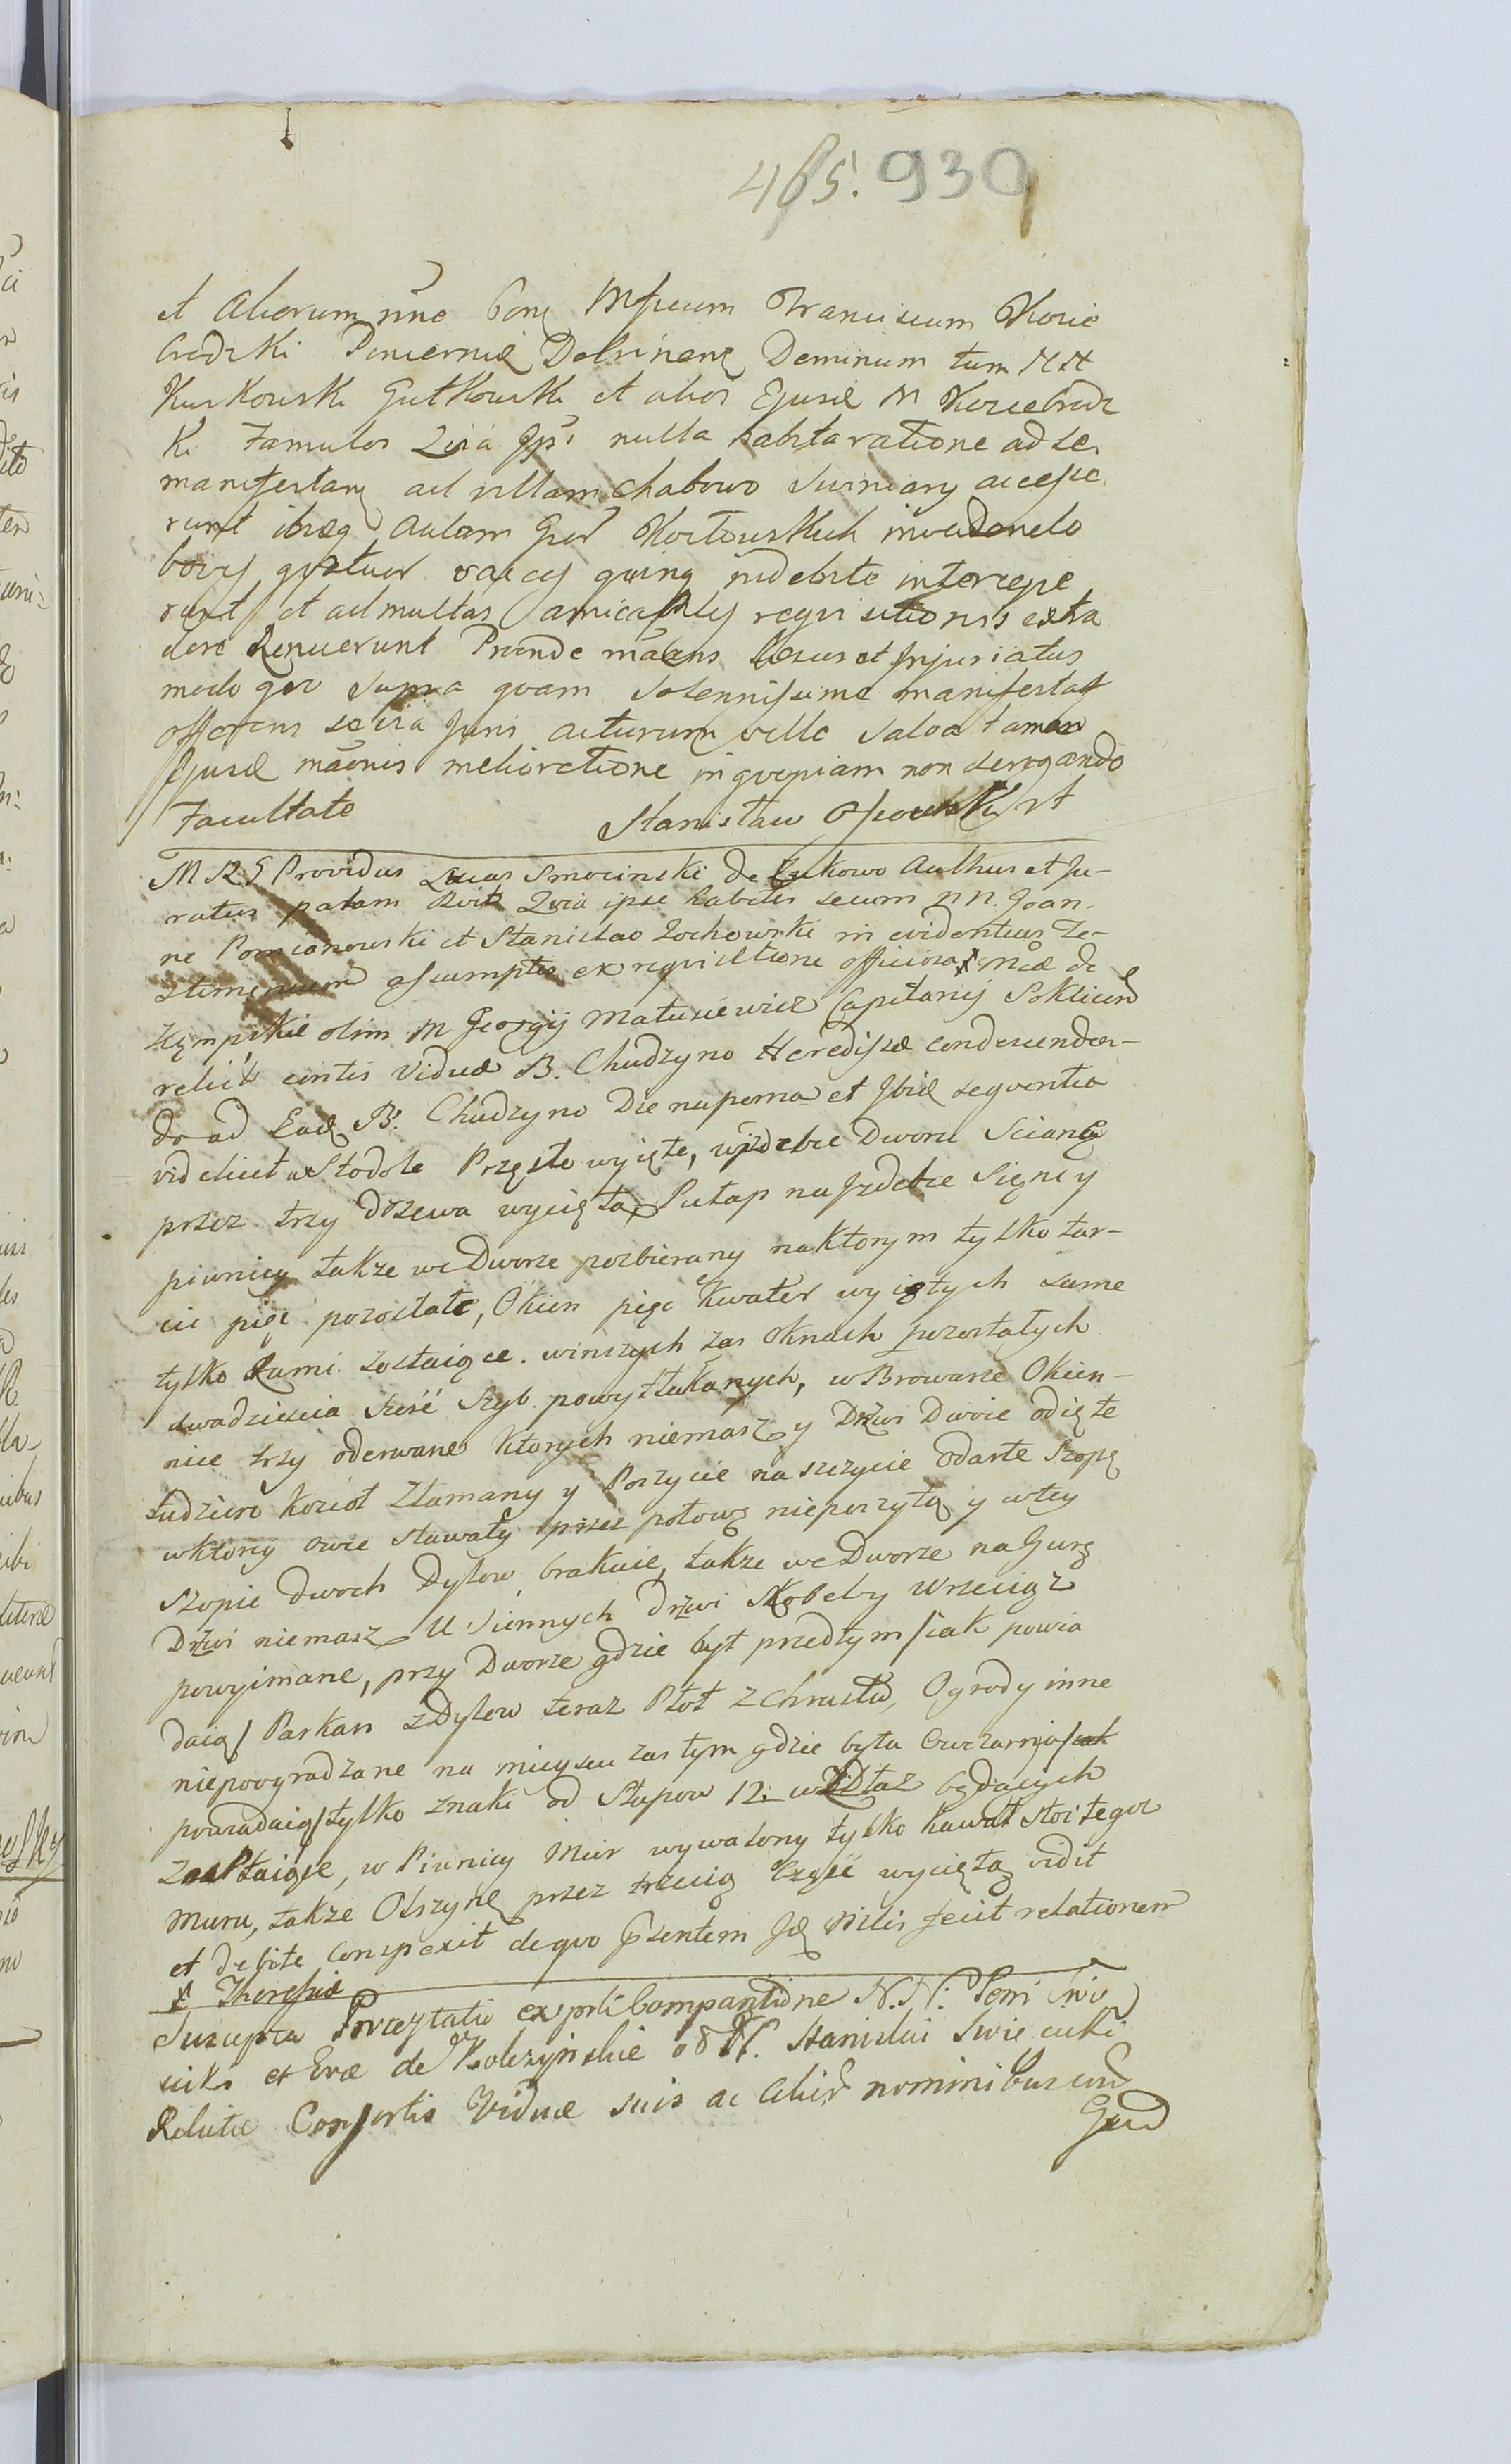 465. 930
et Aliorum nne bonȩ Mfcum Franciscum Kozie
brodzki Pincerniæ Dobrinenȩ Dominum tum NN
Kurkowski Gutkowski et alios Ejusd M Koziebrodz
ki Famulos Qvia Jpsi nulla habita ratione ad se
manifestanȩ ad villam Chabowo Swiniary accesse
runt ibiȩ Aulam Gsor Kozłowskich invadendo
boves qvatuor vaccas qvinȩ indebite intercepe
runt et ad multas amicabiles reqvisitionis extra
dere Renuerunt Proinde mãens læsus et Injuriatus
modo qvo supra qvam solennissime manifestat
offerens se via Juris acturum velle salva tamen
Ejusd mãonis melioratione inqvopiam non derogando
Facultate Stanisław
M R S Providus Lucas Smocinski de Łukowo Authus et Ju-
ratus palam Qvia ipse habitis secum NN. Joan-
ne Pomianowski et Stanislao Zochowski in evidentius Te-
stimonium assumptis ex reqvisitione officiosa Mcæ de
Zȩmpskie olim M Georgij Matusiewicz Capitanij
relictæ contis Viduæ B. Chudzyno Heredissæ condescenden-
do ad Eadȩ B. Chudzyno Die et Ibid seqventia
videlicet w Stodole Przęsło wyięte, w Jzdebce Dworu Scianę
przez trzy drzewa wyciętą, Pułap na Jzdebce Sięni y
piwnicy także we Dworze rozbierany naktorym tylko tar-
cic pięc pozostałe, Okien pięc kwater wyiętych same
tylko Rami zostaiące. winszych zas Oknach pozostałych
dwadziescia sześć Szyb powytłukanych, w Browarze Okien-
nice trzy oderwane ktorych niemasz y Drzwi Dwoie odięte
tudziesz Kozioł złamany y Poszycie na szczycie odarte Szopę
wktorey owce stawały przez połowę nieposzytą y wtey
Szopie dwoch Dylow brakuie, także we Dworze na Gurę
Drzwi niemasz U Siennych drzwi Skobelby Wrzeciądz
powyimane, przy Dworze gdzie był przedtym /iak powia
daią/ Parkan z Dylow teraz Płot z Chrustu, Ogrody inne
niepoogradzane na mieyscu zas tym gdzie była Owczarnia /iak
powiadaią/ tylko znaki od Słupow 12. wzdłuz będących
zostaiące, w Piwnicy Mur wywalony tylko kawał stoi tegoz
Muru, także Olszynę przez trzecią Częsć wyciętą vidit
et debite conspexit deqvo pntem Jȩ Nltis fecit relationem
Theresiæ
Suscepta Percepta Protestatio ex prti Comparitione N.N. Petri Swie
cicki et Evæ de Kobrzynskie o8 N. Stanislai Swiecicki
Relictæ Consortis Viduæ suis ac Alior nominibus